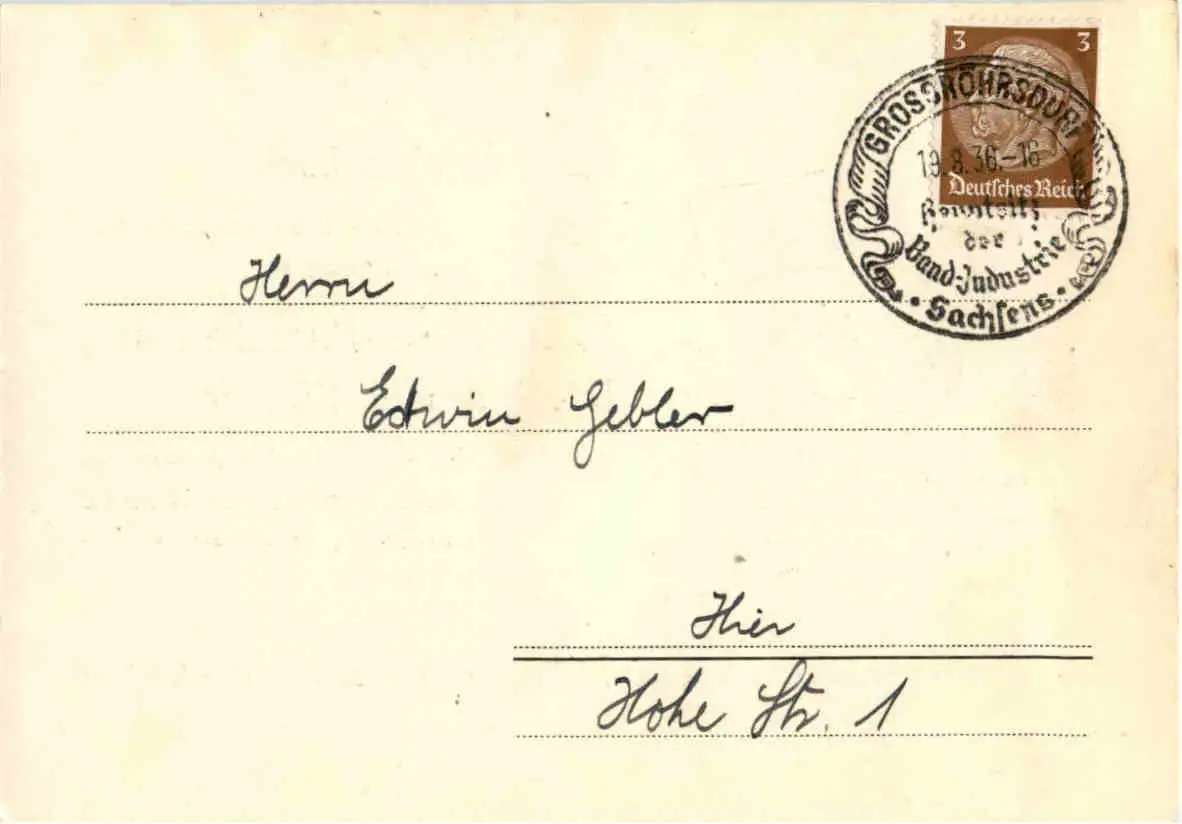 3 3
GROSSRÖHRSDORF
19.8.36.-16
Deutsches Reich
der
Band-Industrie
Sachsens
Herrn
Edwin Gebler
Hier
Hohe Str. 1